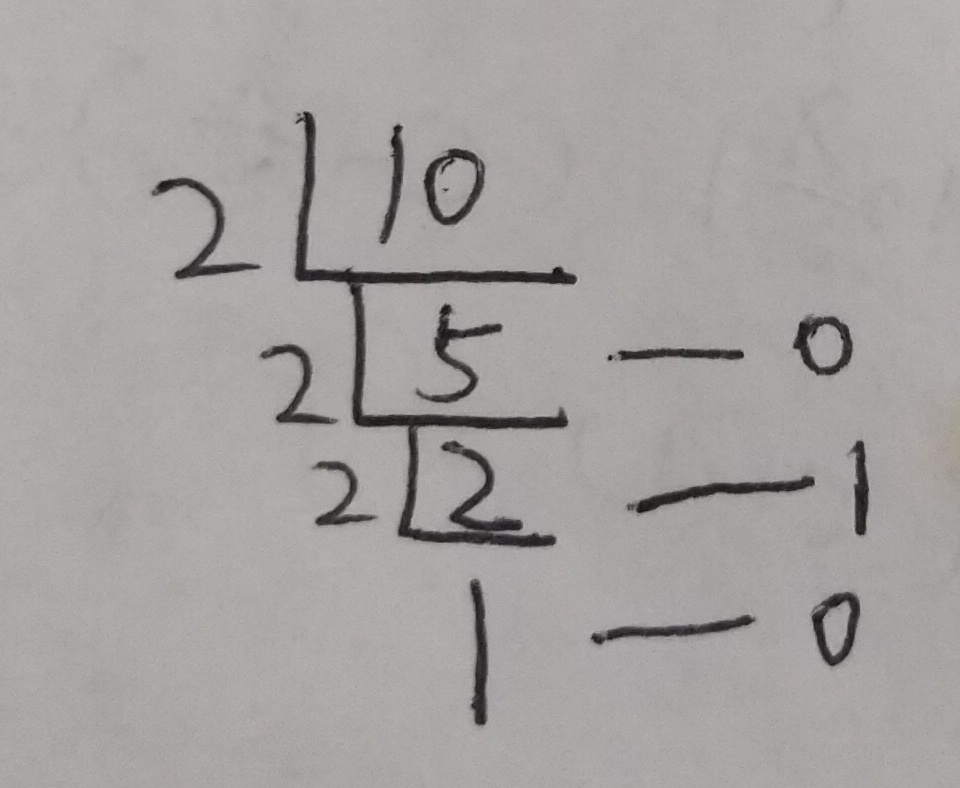 2 10
2 5 — 0
2 2 — 1
1 — 0